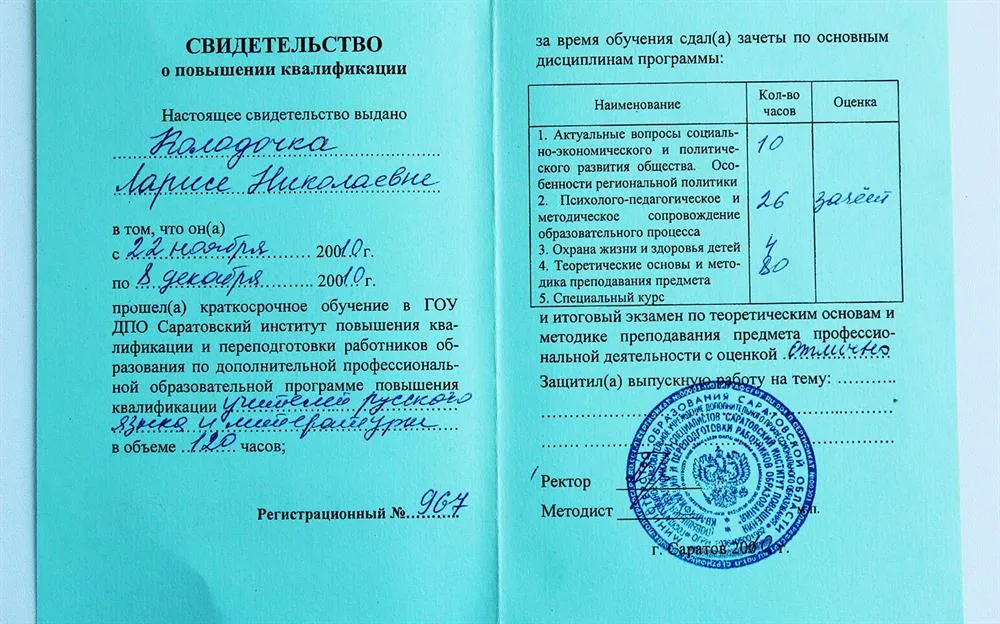 СВИДЕТЕЛЬСТВО
о повышении квалификации
Настоящее свидетельство выдано
Колодочка
Ларисе Николаевне
в том, что он(а)
с 22 ноября 20010 г.
по 8 декабря 20010 г.
прошел(а) краткосрочное обучение в ГОУ
ДПО Саратовский институт повышения ква-
лификации и переподготовки работников об-
разования по дополнительной профессиональ-
ной образовательной программе повышения
квалификации учителей русского
языка и литературы
в объеме 120 часов;
Регистрационный № 967
за время обучения сдал(а) зачеты по основным
дисциплинам программы:
Наименование Кол-во часов Оценка
1. Актуальные вопросы социаль- 10
но-экономического и политиче-
ского развития общества. Осо-
бенности региональной политики
2. Психолого-педагогическое и 26 зачёт
методическое сопровождение
образовательного процесса
3. Охрана жизни и здоровья детей 4
4. Теоретические основы и мето- 80
дика преподавания предмета
5. Специальный курс
и итоговый экзамен по теоретическим основам и
методике преподавания предмета профессио-
нальной деятельности с оценкой отлично
Защитил(а) выпускную работу на тему:
Ректор
Методист
м.п.
г. Саратов 200 г.